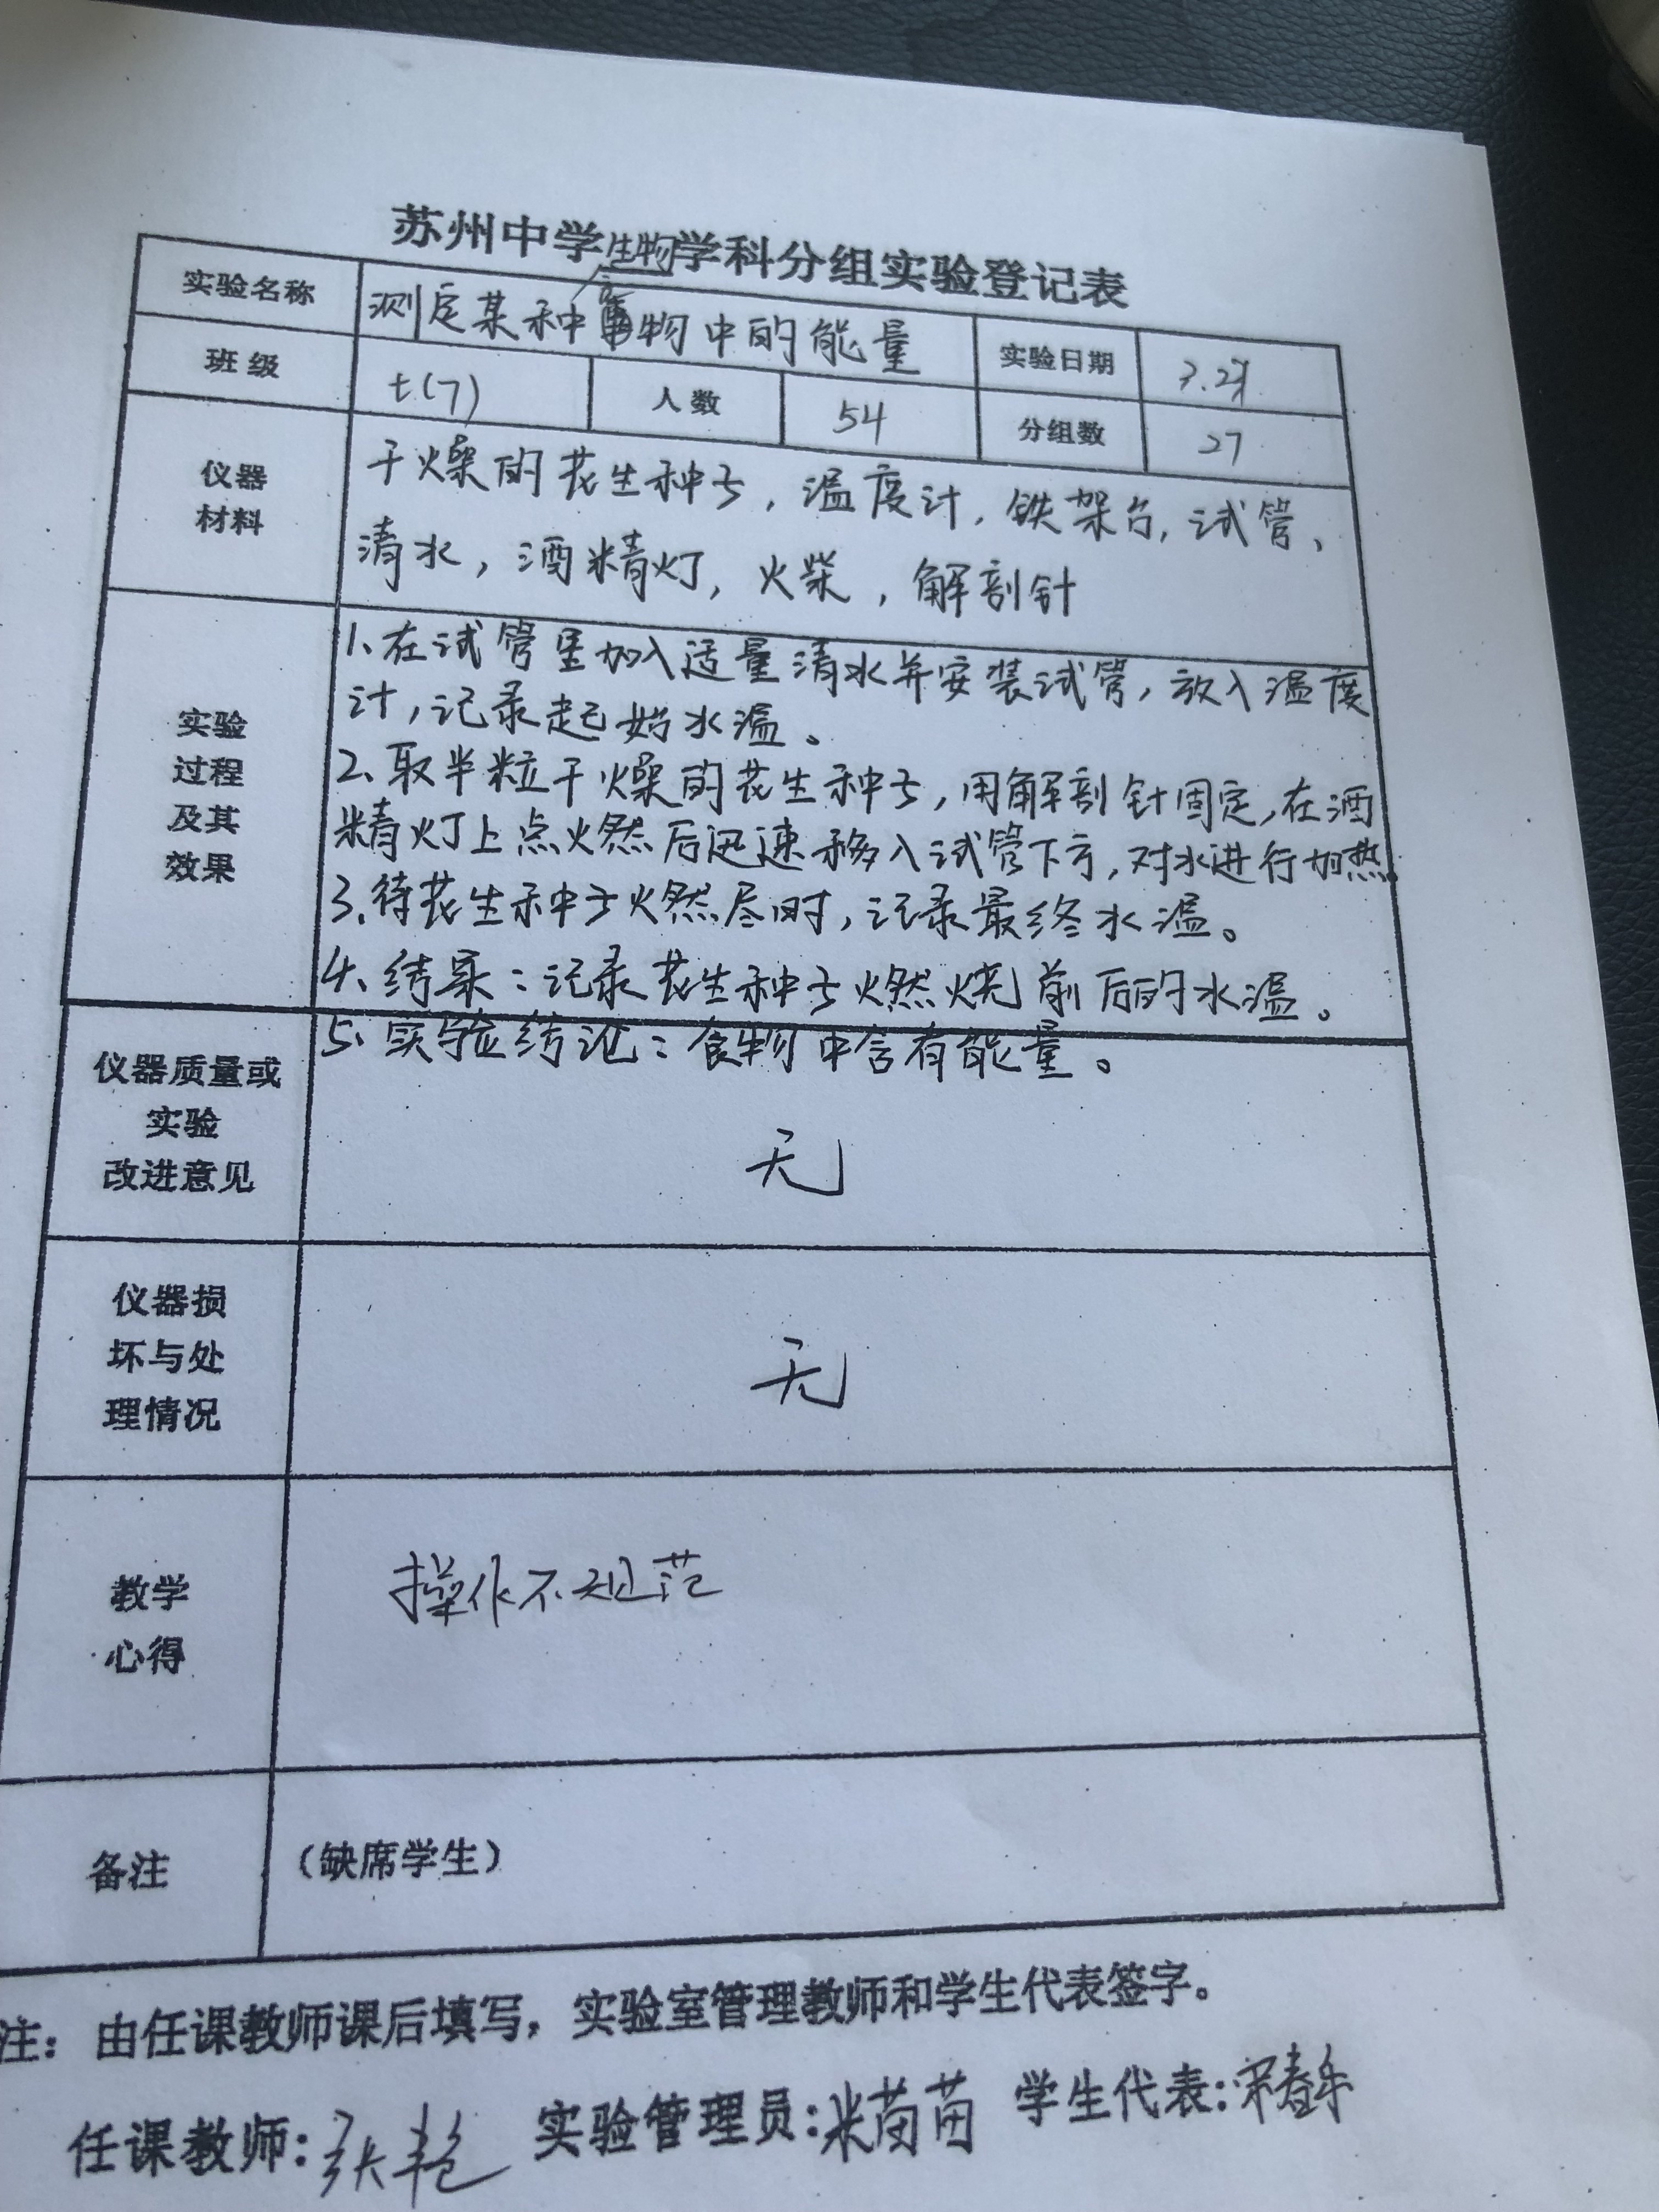 苏州中学生物学科分组实验登记表
实验名称 测定某种食物中的能量 实验日期 3.27
班级 七(7) 人数 54 分组数 27
仪器
材料
干燥的花生种子，温度计，铁架台，试管、
清水，酒精灯，火柴，解剖针
实验
过程
及其
效果
1、在试管里加入适量清水并安装试管，放入温度
计，记录起始水温。
2、取半粒干燥的花生种子，用解剖针固定，在酒
精灯上点火燃后迅速移入试管下方，对水进行加热。
3、待花生种子火燃尽时，记录最终水温。
4、结果：记录花生种子燃烧前后的水温。
5、实验结论：食物中含有能量。
仪器质量或
实验
改进意见
无
仪器损
坏与处
理情况
无
教学
心得
操作不规范
备注
（缺席学生）
注：由任课教师课后填写，实验室管理教师和学生代表签字。
任课教师：张艳 实验管理员：米苗苗 学生代表：宋春